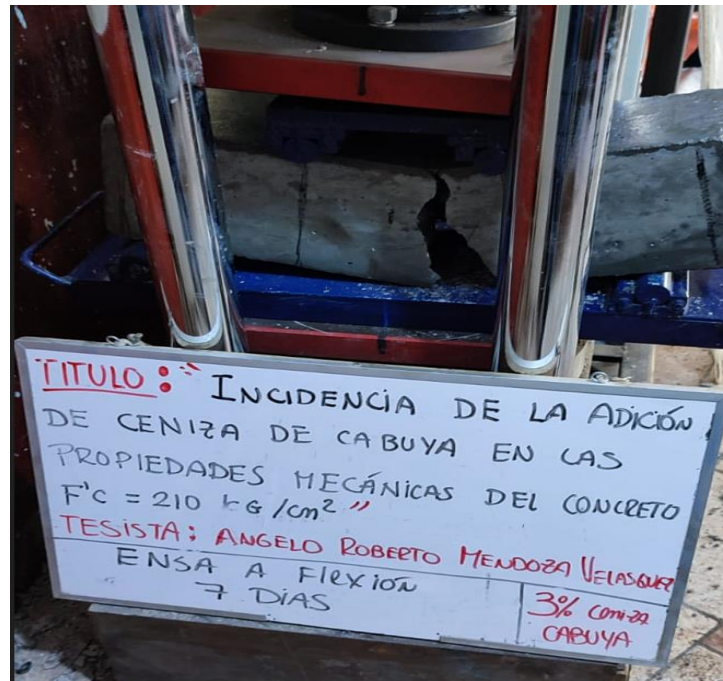 TITULO: " INCIDENCIA DE LA ADICIÓN
DE CENIZA DE CABUYA EN LAS
PROPIEDADES MECÁNICAS DEL CONCRETO
F'C = 210 KG/cm² "
TESISTA: ANGELO ROBERTO MENDOZA VELASQUEZ
ENSA A FLEXIÓN
7 DÍAS
3% Ceniza
CABUYA